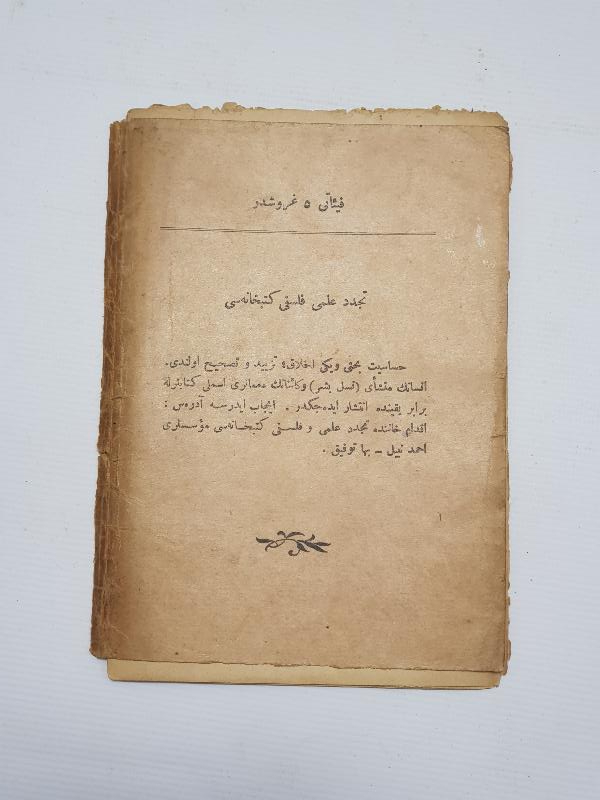 فیئاتی ٥ غروشدر
تجدد علمی فلسفی کتبخانه‌سی
حساسیت بحثی ویکی اخلاق؛ تزیید و تصحیح اولندی.
انسانك منشأی (نسل بشر) وکائناتك معمالری اسملی کتابلرله
برابر یقینده انتشار ایده‌جکدر . ایجاب ایدرسه آدره‌س :
اقدام خاننده تجدد علمی و فلسفی کتبخانه‌سی مؤسسلری
احمد نبیل ـ بها توفیق .